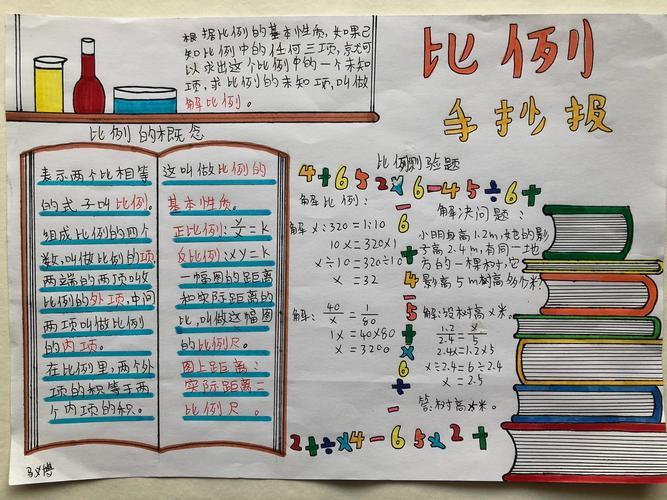 比例
手抄报
根据比例的基本性质,如果已
知比例中的任何三项,就可
以求出这个比例中的一个未知
项,求比例的未知项,叫做
解比例。
比例的概念
表示两个比相等
的式子叫比例。
组成比例的四个
数,叫做比例的项。
两端的两项叫做
比例的外项,中间
两项叫做比例
的内项。
在比例里,两个外
项的积等于两
个内项的积。
这叫做比例的
基本性质。
正比例:y/x=k
反比例:xy=k
一幅图的距离
和实际距离的
比,叫做这幅图
的比例尺。
图上距离:
实际距离=
比例尺。
比例测验题
4+652×6-45÷6+
解比例:
x:320=1:10
10x=320×1
x÷10=320÷10
x=32
解:40/x=1/80
1x=40×80
x=3200
6
-
6
÷
4
-
5
+
×
6
÷
-
解决问题:
小明身高1.2m,她的影
子高2.4m,有同一地
方的一棵树,它
影高5m树高多少米?
解:设树高x米。
1.2/2.4=x/5
2.4x=1.2×5
x÷2.4=6÷2.4
x=2.5
答:树高 米。
2+÷×4-65×2+